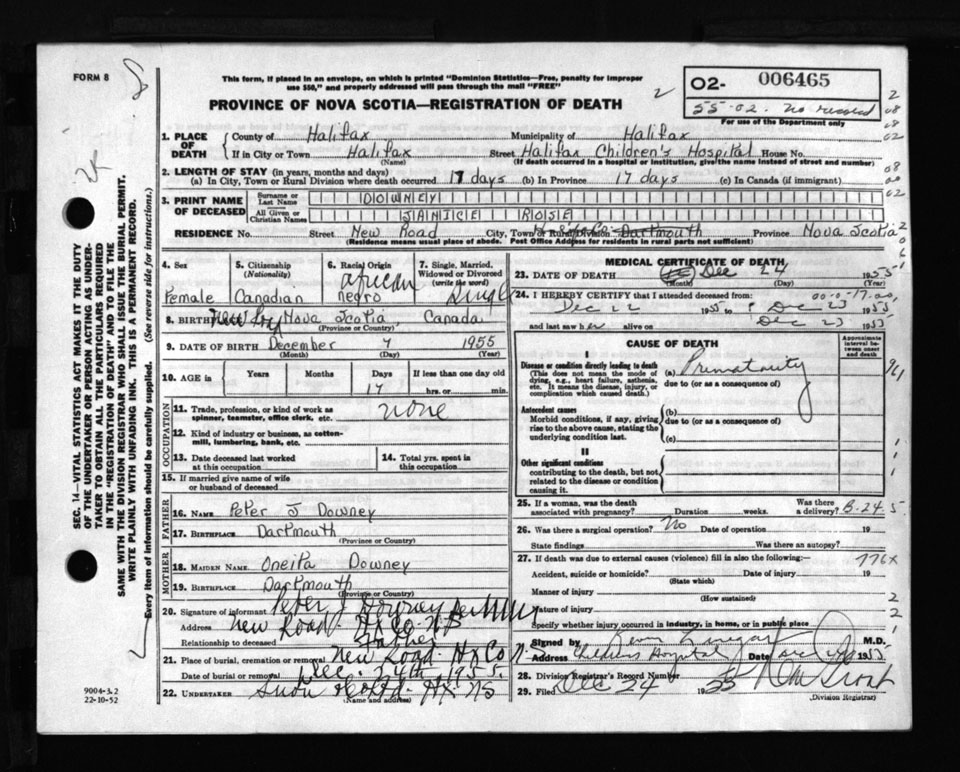 FORM 8
This form, if placed in an envelope, on which is printed "Dominion Statistics—Free, penalty for improper
use $50," and properly addressed will pass through the mail "FREE"
PROVINCE OF NOVA SCOTIA—REGISTRATION OF DEATH
02- 006465
55-02. No record
For use of the Department only
1. PLACE OF DEATH
County of Halifax Municipality of Halifax
If in City or Town Halifax Street Halifax Children's Hospital House No.
(Name) (If death occurred in a hospital or institution, give the name instead of street and number)
2. LENGTH OF STAY (in years, months and days)
(a) In City, Town or Rural Division where death occurred 17 days (b) In Province 17 days (c) In Canada (if immigrant)
3. PRINT NAME OF DECEASED
Surname or Last Name DOWNEY
All Given or Christian Names JANICE ROSE
RESIDENCE No. Street New Road City, Town or Rural Division Dartmouth Province Nova Scotia
(Residence means usual place of abode. Post Office Address for residents in rural parts not sufficient)
4. Sex
Female
5. Citizenship
(Nationality)
Canadian
6. Racial Origin
African
negro
7. Single, Married,
Widowed or Divorced
(write the word)
Single
8. BIRTHPLACE New Road Nova Scotia, Canada
(Province or Country)
9. DATE OF BIRTH December 7 1955
(Month) (Day) (Year)
10. AGE in
Years Months Days If less than one day old
17 hrs. or min.
OCCUPATION
11. Trade, profession, or kind of work as
spinner, teamster, office clerk, etc. none
12. Kind of industry or business, as cotton-
mill, lumbering, bank, etc.
13. Date deceased last worked
at this occupation
14. Total yrs. spent in
this occupation
15. If married give name of wife
or husband of deceased
FATHER
16. NAME Peter J Downey
17. BIRTHPLACE Dartmouth
(Province or Country)
MOTHER
18. MAIDEN NAME Oneita Downey
19. BIRTHPLACE Dartmouth
(Province or Country)
20. Signature of informant Peter J Downey
Address New Road Hx Co NS
Relationship to deceased Father
21. Place of burial, cremation or removal New Road Hx Co N
Date of burial or removal Dec. 24th 1955.
22. UNDERTAKER Hx NS
(Name and address)
9004-3.2
22-10-52
MEDICAL CERTIFICATE OF DEATH
23. DATE OF DEATH Dec 24 1955
(Month) (Day)
24. I HEREBY CERTIFY that I attended deceased from:
Dec 22 1955 to Dec 23 1955
and last saw her alive on Dec 23 1955
CAUSE OF DEATH
Approximate
interval be-
tween onset
and death
I
Disease or condition directly leading to death
(This does not mean the mode of
dying, e.g., heart failure, asthenia,
etc. It means the disease, injury, or
complication which caused death.)
(a) Prematurity
due to (or as a consequence of)
Antecedent causes
Morbid conditions, if any, giving
rise to the above cause, stating the
underlying condition last.
(b)
due to (or as a consequence of)
(c)
II
Other significant conditions
contributing to the death, but not
related to the disease or condition
causing it.
25. If a woman, was the death
associated with pregnancy? Duration weeks. Was there
a delivery? B-24.5
26. Was there a surgical operation? No Date of operation 19
State findings Was there an autopsy?
27. If death was due to external causes (violence) fill in also the following: 776x
Accident, suicide or homicide? Date of injury 19
(State which)
Manner of injury
(How sustained)
Nature of injury
Specify whether injury occurred in industry, in home, or in public place
Signed by M.D.
Address Childrens Hospital Date 1955
28. Division Registrar's Record Number
29. Filed Dec 24 1955
(Division Registrar)
SEC. 14—VITAL STATISTICS ACT MAKES IT THE DUTY
OF THE UNDERTAKER OR PERSON ACTING AS UNDER-
TAKER TO OBTAIN ALL THE PARTICULARS REQUIRED
IN THE "REGISTRATION OF DEATH" AND TO FILE THE
SAME WITH THE DIVISION REGISTRAR WHO SHALL ISSUE THE BURIAL PERMIT.
WRITE PLAINLY WITH UNFADING INK. THIS IS A PERMANENT RECORD.
Every item of information should be carefully supplied. (See reverse side for instructions.)